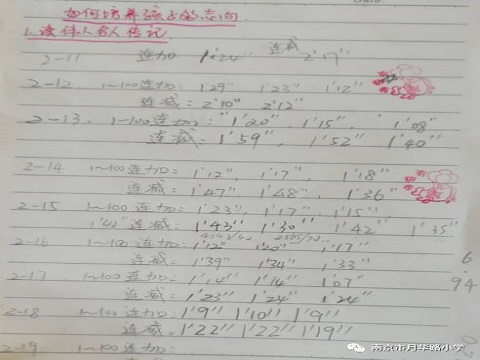 如何培养孩子的志向
1. 读伟人名人传记
2-11 连加 1'24" 连减 2'17"
2-12. 1~100连加: 1'29" 1'23" 1'12"
连减: 2'10" 2'12"
2-13. 1-100连加: 1'20" 1'15" 1'08"
连减: 1'59", 1'52" 1'40"
2-14 1~100连加: 1'12", 1'17", 1'18"
连减: 1'47" 1'48" 1'36"
2-15 1~100连加: 1'23" 1'17" 1'15"
1'42" 连减: 1'43" 1'30" 1'42" 1'35"
2-16 1~100连加: 1'12" 1'20" 1'17"
连减: 1'39" 1'34" 1'33"
6.
2-17 1~100连加: 1'14" 1'14" 1'07"
94
连减: 1'23" 1'24" 1'24"
2-18 1~100连加: 1'9" 1'10" 1'9"
连减: 1'22" 1'22" 1'19"
2-19 1~100连加:
南京市月华路小学